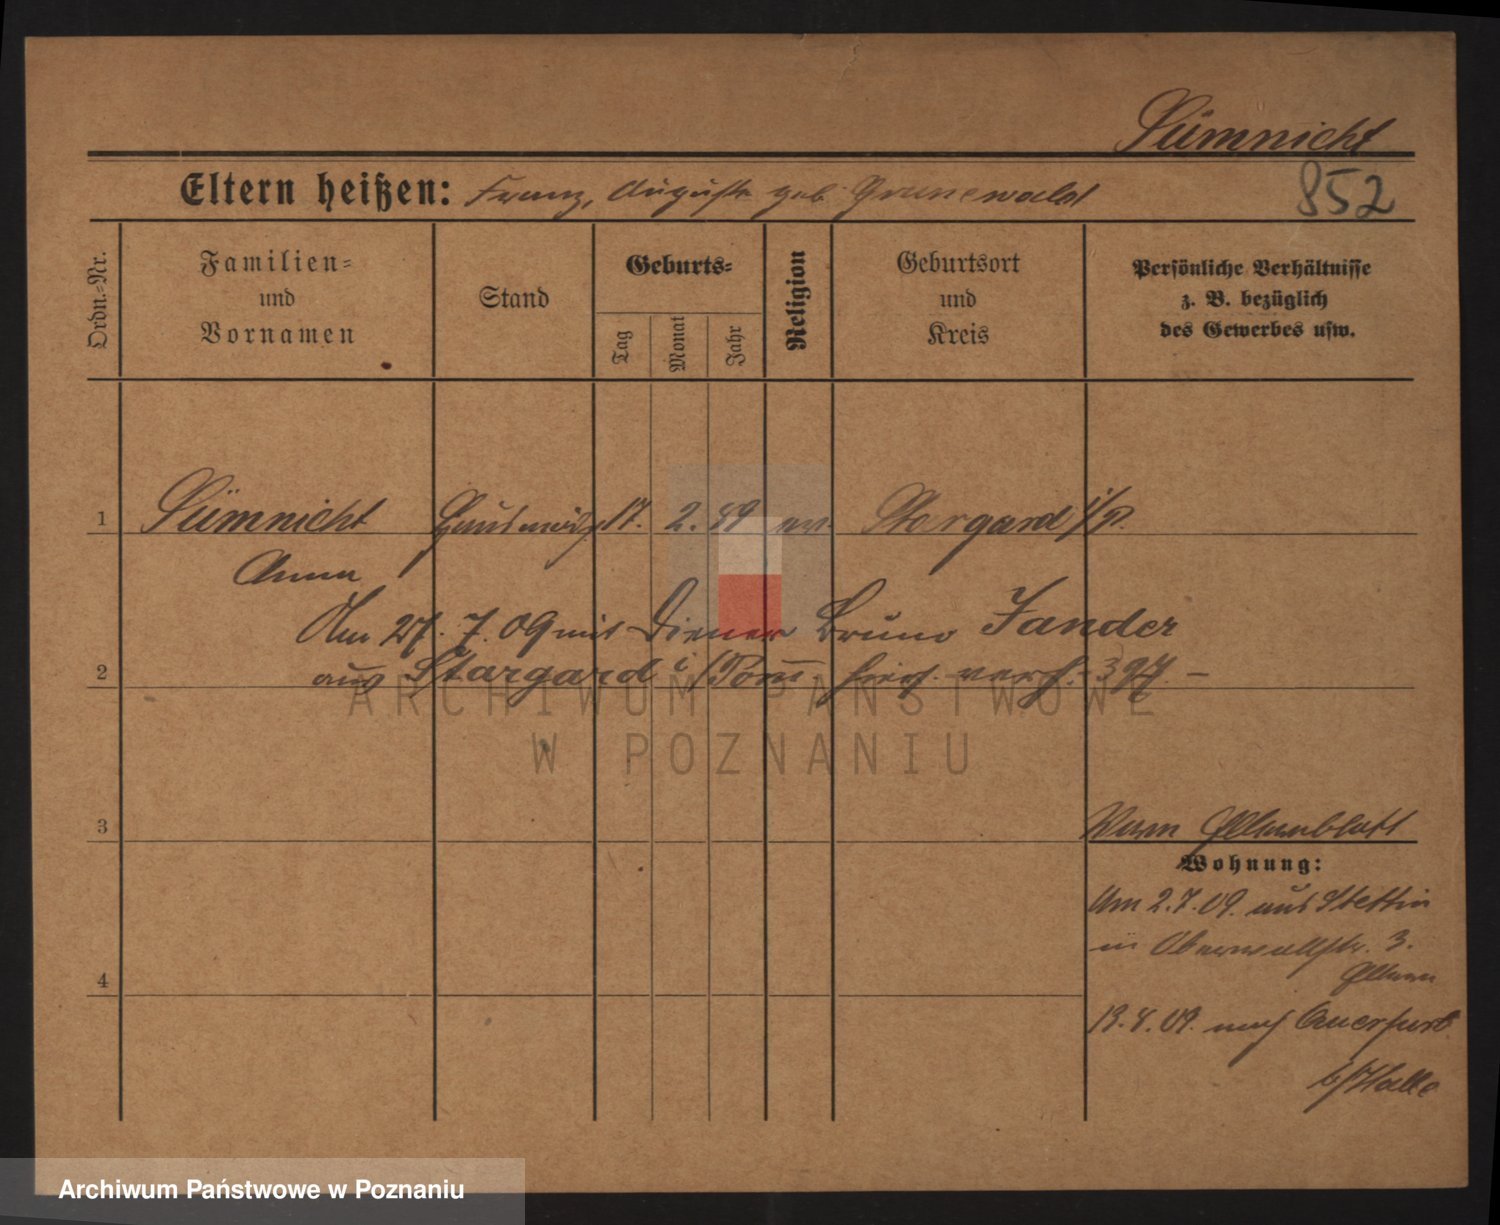 Sümnicht
852
Eltern heißen: Franz, Auguste geb. Grunewald
Ordn.-Nr.
Familien-
und
Vornamen
Stand
Geburts-
Tag
Monat
Jahr
Religion
Geburtsort
und
Kreis
Persönliche Verhältnisse
z. B. bezüglich
des Gewerbes usw.
1 Sümnicht 17. 2. 89 ev. Stargard i/P.
Anna
Am 27. 7. 09 mit Diener Bruno Jander
2 aus Stargard i/Pom hier verh. 397. –
ARCHIWUM PAŃSTWOWE
W POZNANIU
3
Wohnung:
Am 2.7.09. aus Stettin
in Oberwallstr. 3.
4
nach Querfurt
b/Halle
Archiwum Państwowe w Poznaniu